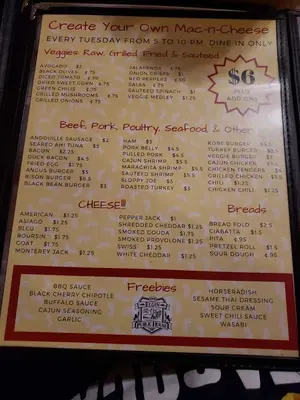 Create Your Own Mac-n-Cheese
EVERY TUESDAY FROM 5 TO 10 PM. DINE IN ONLY
Veggies: Raw, Grilled, Fried & Sauteed
AVOCADO $2
BLACK OLIVES $.75
DICED TOMATO $.75
DRIED SWEET CORN $.75
GREEN CHILIS $.75
GRILLED MUSHROOMS $.75
GRILLED ONIONS $.75
JALAPENOS $.75
ONION CRISPS $1
RED PEPPERS
SALSA
SAUTEED SPINACH $1
VEGGIE MEDLEY $1.25
$6
PLUS
ADD ONS
Beef, Pork, Poultry, Seafood, & Other
ANDOUILLE SAUSAGE $2
SEARED AHI TUNA $5
BACON $2.25
DUCK BACON
FRIED EGG
ANGUS BURGER $5
BISON BURGER
BLACK BEAN BURGER $3
HAM $3
PORK BELLY $4.5
PULLED PORK $4.5
CAJUN SHRIMP $5
MARAGRITA SHRIMP $5
SAUTEED SHRIMP $5
SLOPPY JOE $3
ROASTED TURKEY $3
KOBE BURGER
TURKEY BURGER
VEGGIE BURGER
CAJUN CHICKEN
CHICKEN TENDERS
GRILLED CHICKEN
CHILI $1.25
CHICKEN CHILI $1.25
CHEESE!!!
AMERICAN $1.25
ASIAGO $1.25
BLEU $1.75
BOURSIN $1.75
GOAT $1.75
MONTEREY JACK $1.25
PEPPER JACK $1
SHREDDED CHEDDAR $1.25
SMOKED GOUDA $1.75
SMOKED PROVOLONE $1.25
SWISS $1.25
WHITE CHEDDAR $1.25
Breads
BREAD FOLD $2.5
CIABATTA $1.5
PITA $.95
PRETZEL ROLL $1.5
SOUR DOUGH $.95
Freebies
BBQ SAUCE
BLACK CHERRY CHIPOTLE
BUFFALO SAUCE
CAJUN SEASONING
GARLIC
HORSERADISH
SESAME THAI DRESSING
SOUR CREAM
SWEET CHILI SAUCE
WASABI